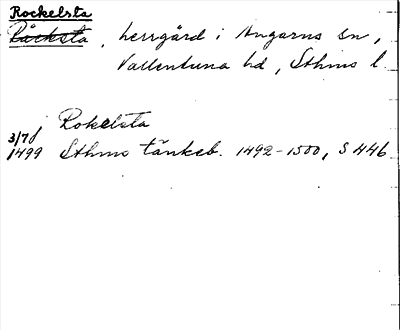 Rockelsta
Råcksta, herrgård i Angarns sn,
Vallentuna hd, Sthms l.
Rokelsta
3/7
1499 Sthms tänkeb. 1492-1500, S 446